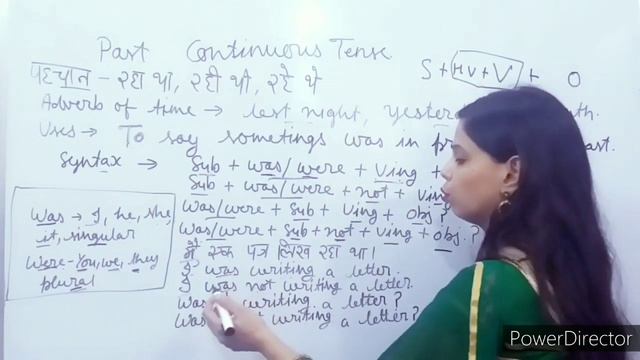 Past Continuous Tense
पहचान - रहा था, रही थी, रहे थे
S + HV + V + O
Adverb of time → last night, yester th.
Uses → To say sometings was in pr ast.
Syntax → Sub + was/were + Ving +
Sub + was/were + not + Ving
Was/were + Sub + Ving + obj ?
Was/were + Sub + not + Ving + obj ?
Was → I, he, she,
it, singular
Were - You, we, they
plural
मैं एक पत्र लिख रहा था।
I was writing a letter.
I was not writing a letter.
Was writing a letter ?
Was writing a letter ?
PowerDirector